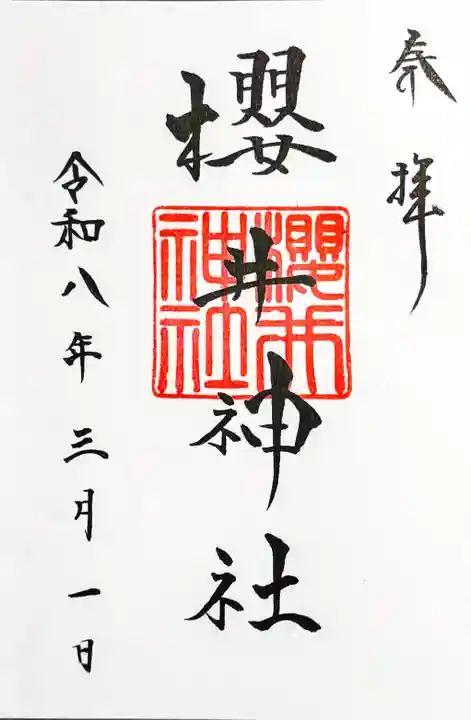 奉拝
櫻井神社
櫻井
神社
令和八年三月一日